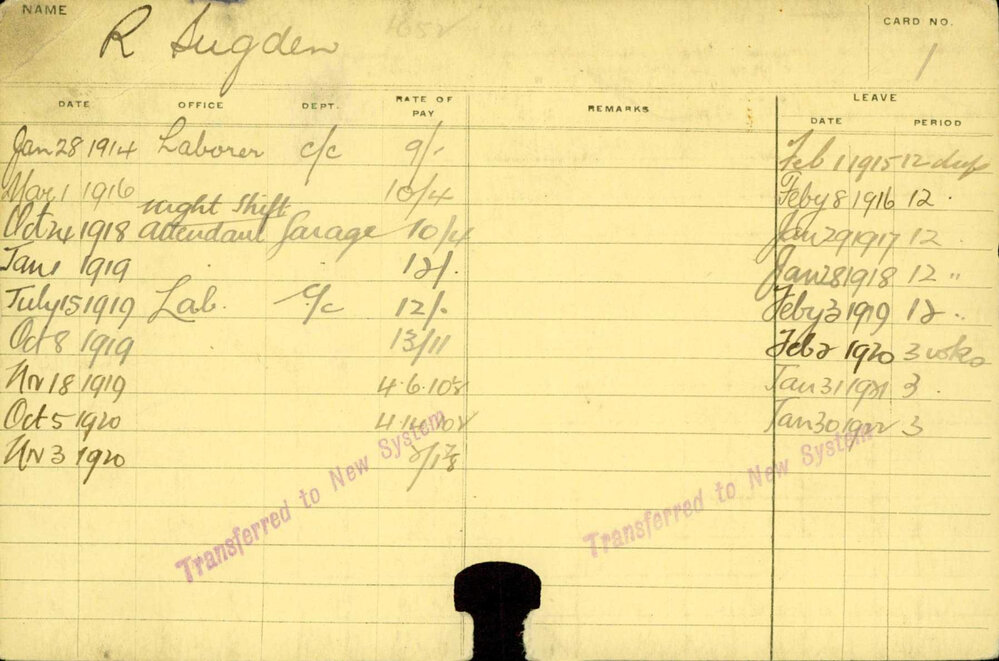 NAME
R Sugden
CARD NO.
1
DATE OFFICE DEPT. RATE OF PAY REMARKS LEAVE
DATE PERIOD
Jan 28 1914 Laborer c/c 9/- Feb 1 1915 12 days
Mar 1 1916 10/4 Feby 8 1916 12 "
night shift
Oct 24 1918 attendant Garage 10/4 Jan 29 1917 12 "
Jan 1 1919 12/- Jan 28 1918 12 "
July 15 1919 Lab. c/c 12/- Feby 3 1919 12 "
Oct 8 1919 13/11 Feb 2 1920 3 wks
Nv 18 1919 4.6.10½ Jan 31 1921 3 "
Oct 5 1920 Jan 30 1922 3
Nv 3 1920
Transferred to New System
Transferred to New System